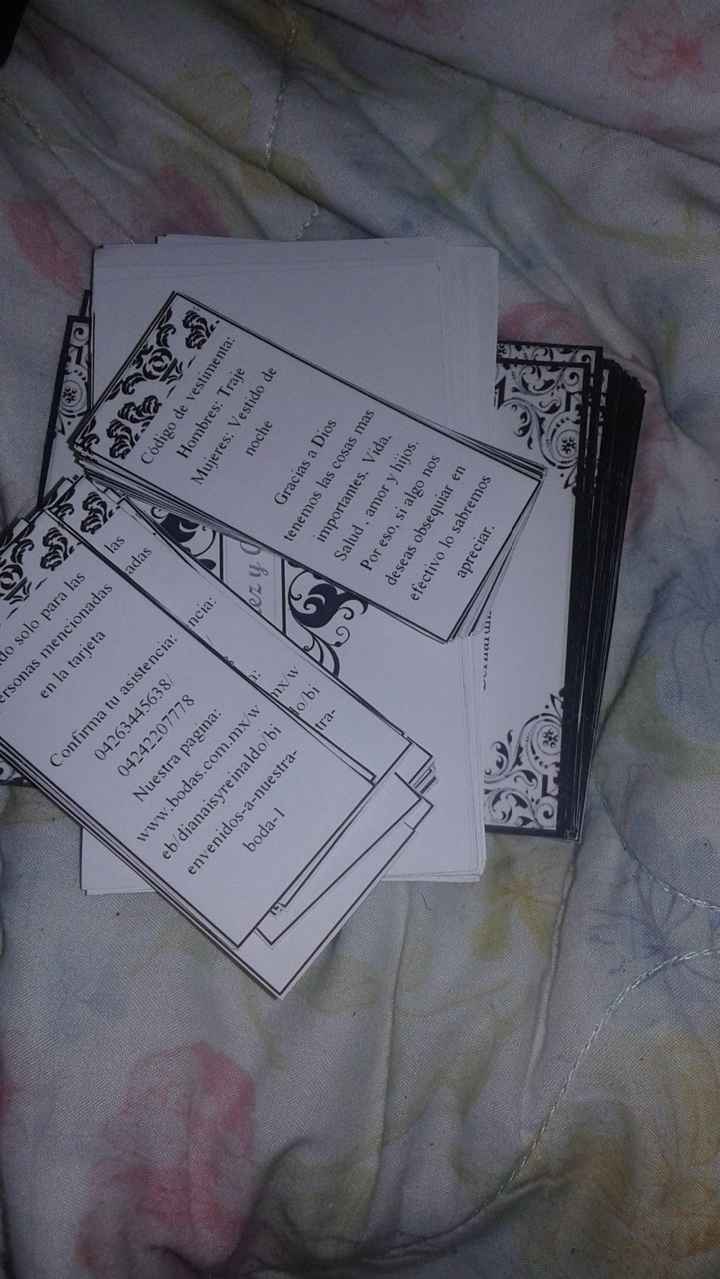 Código de vestimenta:
Hombres: Traje
Mujeres: Vestido de
noche
Gracias a Dios
tenemos las cosas mas
importantes, Vida,
Salud , amor y hijos.
Por eso, si algo nos
deseas obsequiar en
efectivo lo sabremos
apreciar.
solo para las
mencionadas
en la tarjeta
Confirma tu asistencia:
04263445638/
04242207778
Nuestra pagina:
www.bodas.com.mx/w
eb/dianaisyreinaldo/bi
envenidos-a-nuestra-
boda-1
las
adas
ncia:
mx/w
do/bi
tra-
ez y